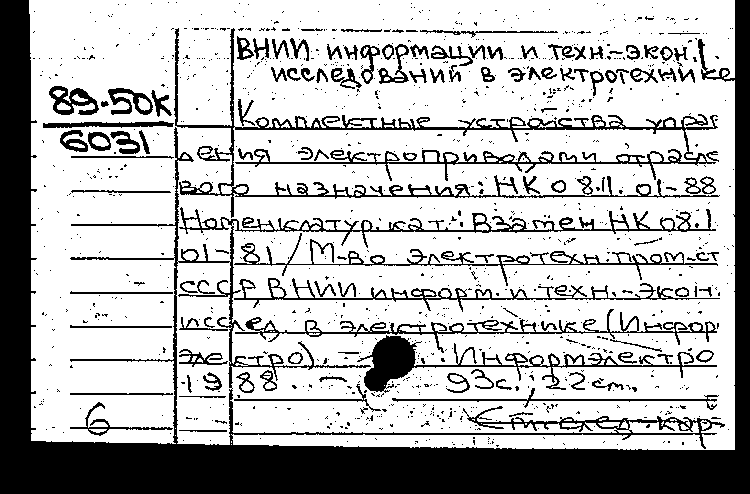 ВНИИ информации и техн.-экон.
исследований в электротехнике
89-50К
6031
Комплектные устройства управ
ления электроприводами отрасле
вого назначения: НК 08.11.01-88
Номенклатур. кат.: Взамен НК 08.1
01-81 / М-во электротехн. пром-ст
СССР, ВНИИ информ. и техн.-экон.
исслед. в электротехнике (Информ
электро). - : Информэлектро
1988. - 93с.; 22 см.
6